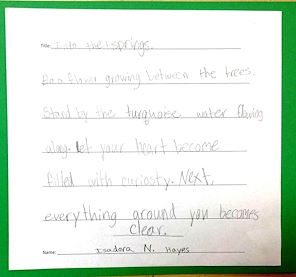 Title: Into the springs.
Be a flower growing between the trees.
Stand by the turquoise water flowing
along. Let your heart become
filled with curiosty. Next,
everything around you becomes
clear.
Name: Isadora N. Hayes